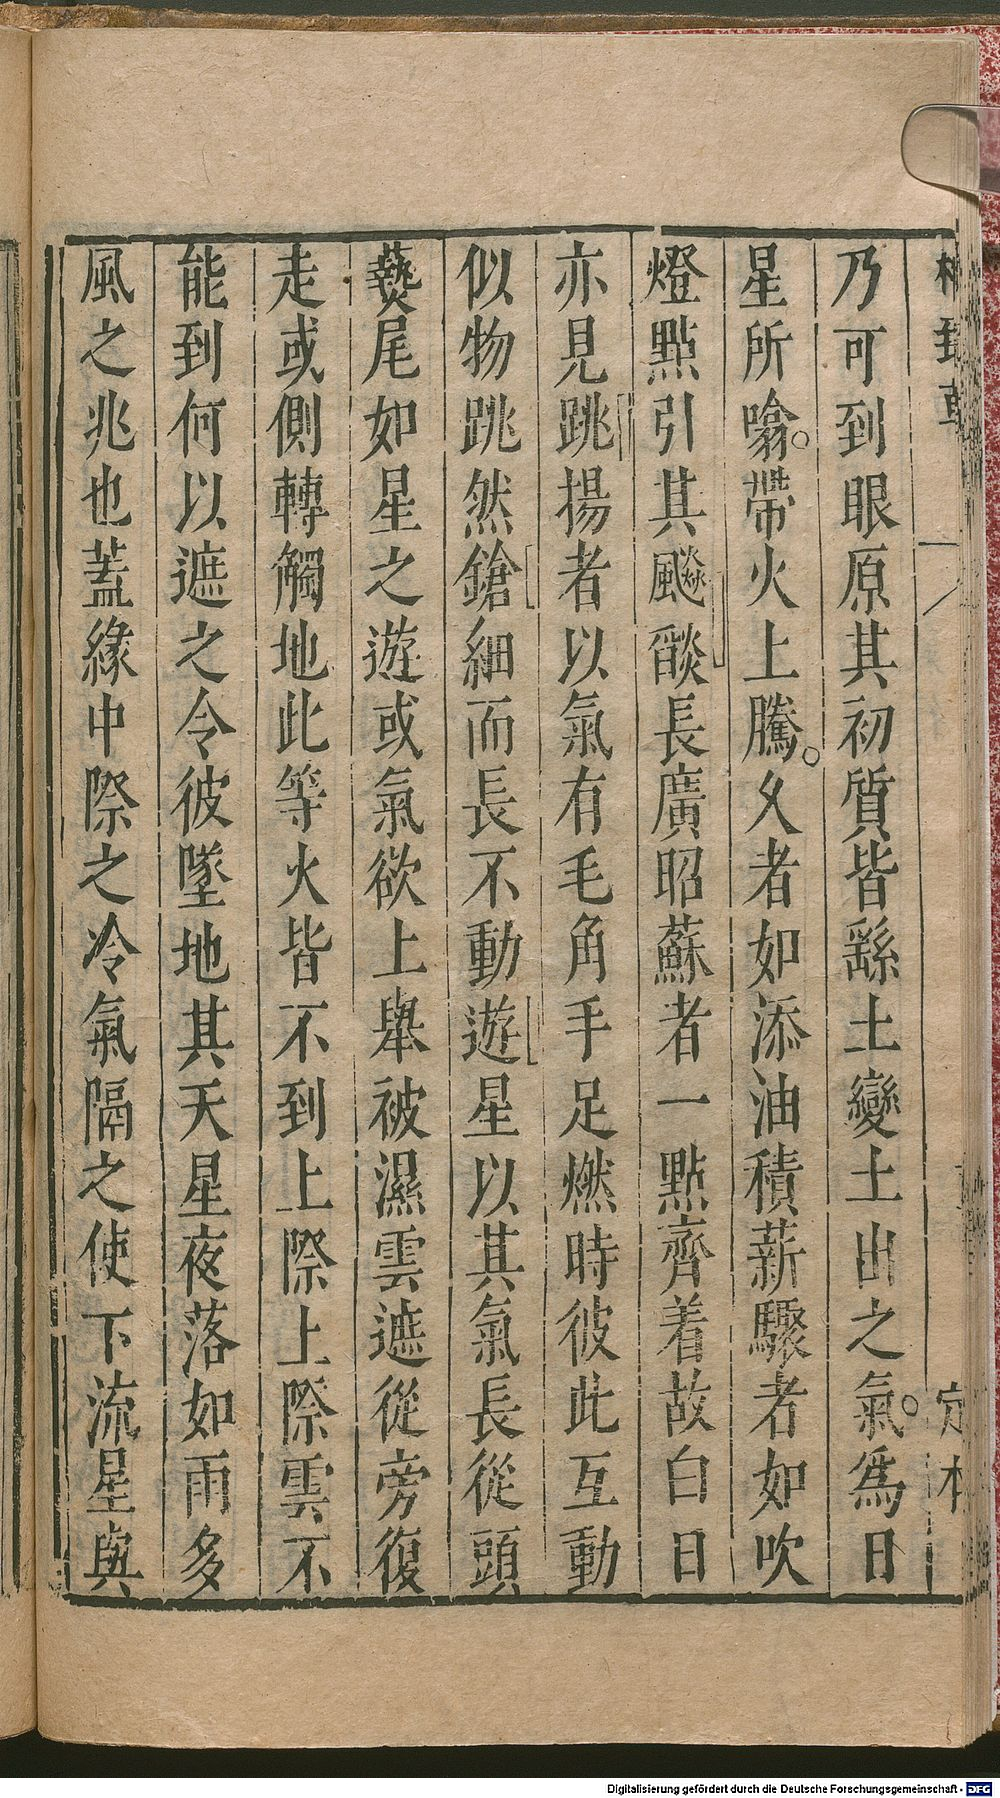 乃可到眼原其初質皆繇土變土出之氣。爲日
星所噏。帶火上騰。久者如添油積薪驟者如吹
燈點引其飈燄長廣昭蘇者一點齊着故白日
亦見跳揚者以氣有毛角手足燃時彼此互動
似物跳然鎗細而長不動遊星以其氣長從頭
爇尾如星之遊或氣欲上舉被濕雲遮從旁復
走或側轉觸地此等火皆不到上際上際雲不
能到何以遮之令彼墜地其天星夜落如雨多
風之兆也蓋緣中際之冷氣隔之使下流星與
Digitalisierung gefördert durch die Deutsche Forschungsgemeinschaft - DFG